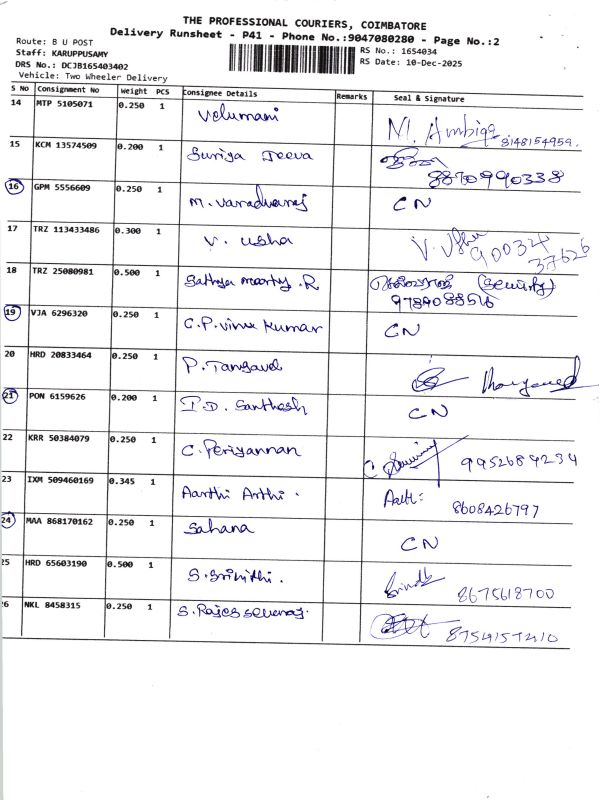 THE PROFESSIONAL COURIERS, COIMBATORE
Delivery Runsheet - P41 - Phone No.:9047080280 - Page No.:2
Route: B U POST
RS No.: 1654034
Staff: KARUPPUSAMY
RS Date: 10-Dec-2025
DRS No.: DCJB165403402
Vehicle: Two Wheeler Delivery
S No Consignment No Weight PCS Consignee Details Remarks Seal & Signature
14 MTP 5105071 0.250 1 Velumani M. Ambiga 8148154959.
15 KCM 13574509 0.200 1 Suriya Jeeva 8870990338
16 GPM 5556609 0.250 1 M. Varadharaj CN
17 TRZ 113433486 0.300 1 V. Usha V. Usha 90034 37626
18 TRZ 25080981 0.500 1 Sathya moorthy .R (Security) 9789088516
19 VJA 6296320 0.250 1 C.P. Vinu Kumar CN
20 HRD 20833464 0.250 1 P. Tangavel
21 PON 6159626 0.200 1 I.D. Santhosh CN
22 KRR 50384079 0.250 1 C. Periyannan 9952689234
23 IXM 509460169 0.345 1 Aarthi Arthi . Aarthi: 8608426797
24 MAA 868170162 0.250 1 Sahana CN
25 HRD 65603190 0.500 1 S. Srinithi . 8675618700
26 NKL 8458315 0.250 1 8754157410